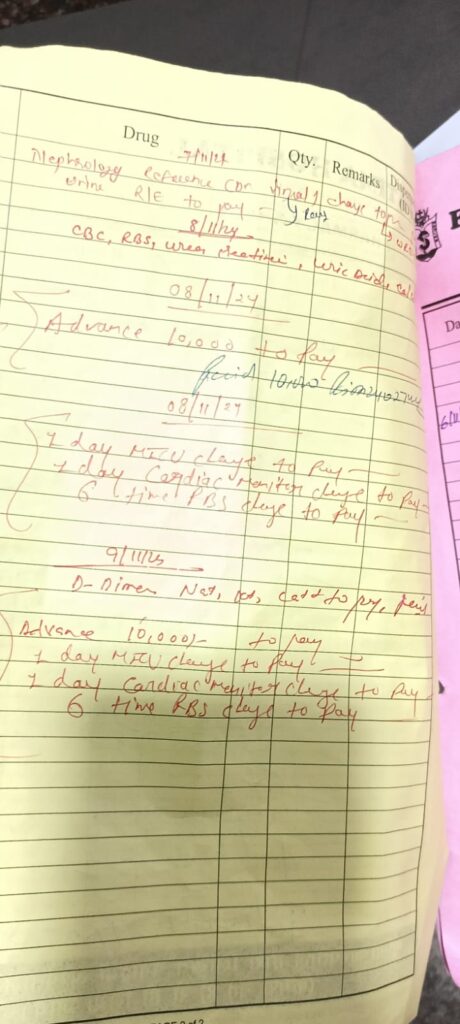 Drug Qty. Remarks
7/11/24
Nephrology Reference charge to pay
urine R/E to pay -
8/11/24
CBC, RBS, urea creatinine, uric acid,
08/11/24
Advance 10,000 to pay
paid 10,000
08/11/24
1 day MICU charge to pay
1 day Cardiac Monitor charge to pay
6 time RBS charge to pay
9/11/24
D-Dimer Na+, to pay,
Advance 10,000/- to pay
1 day MICU charge to pay
1 day Cardiac Monitor charge to pay
6 time RBS charge to pay